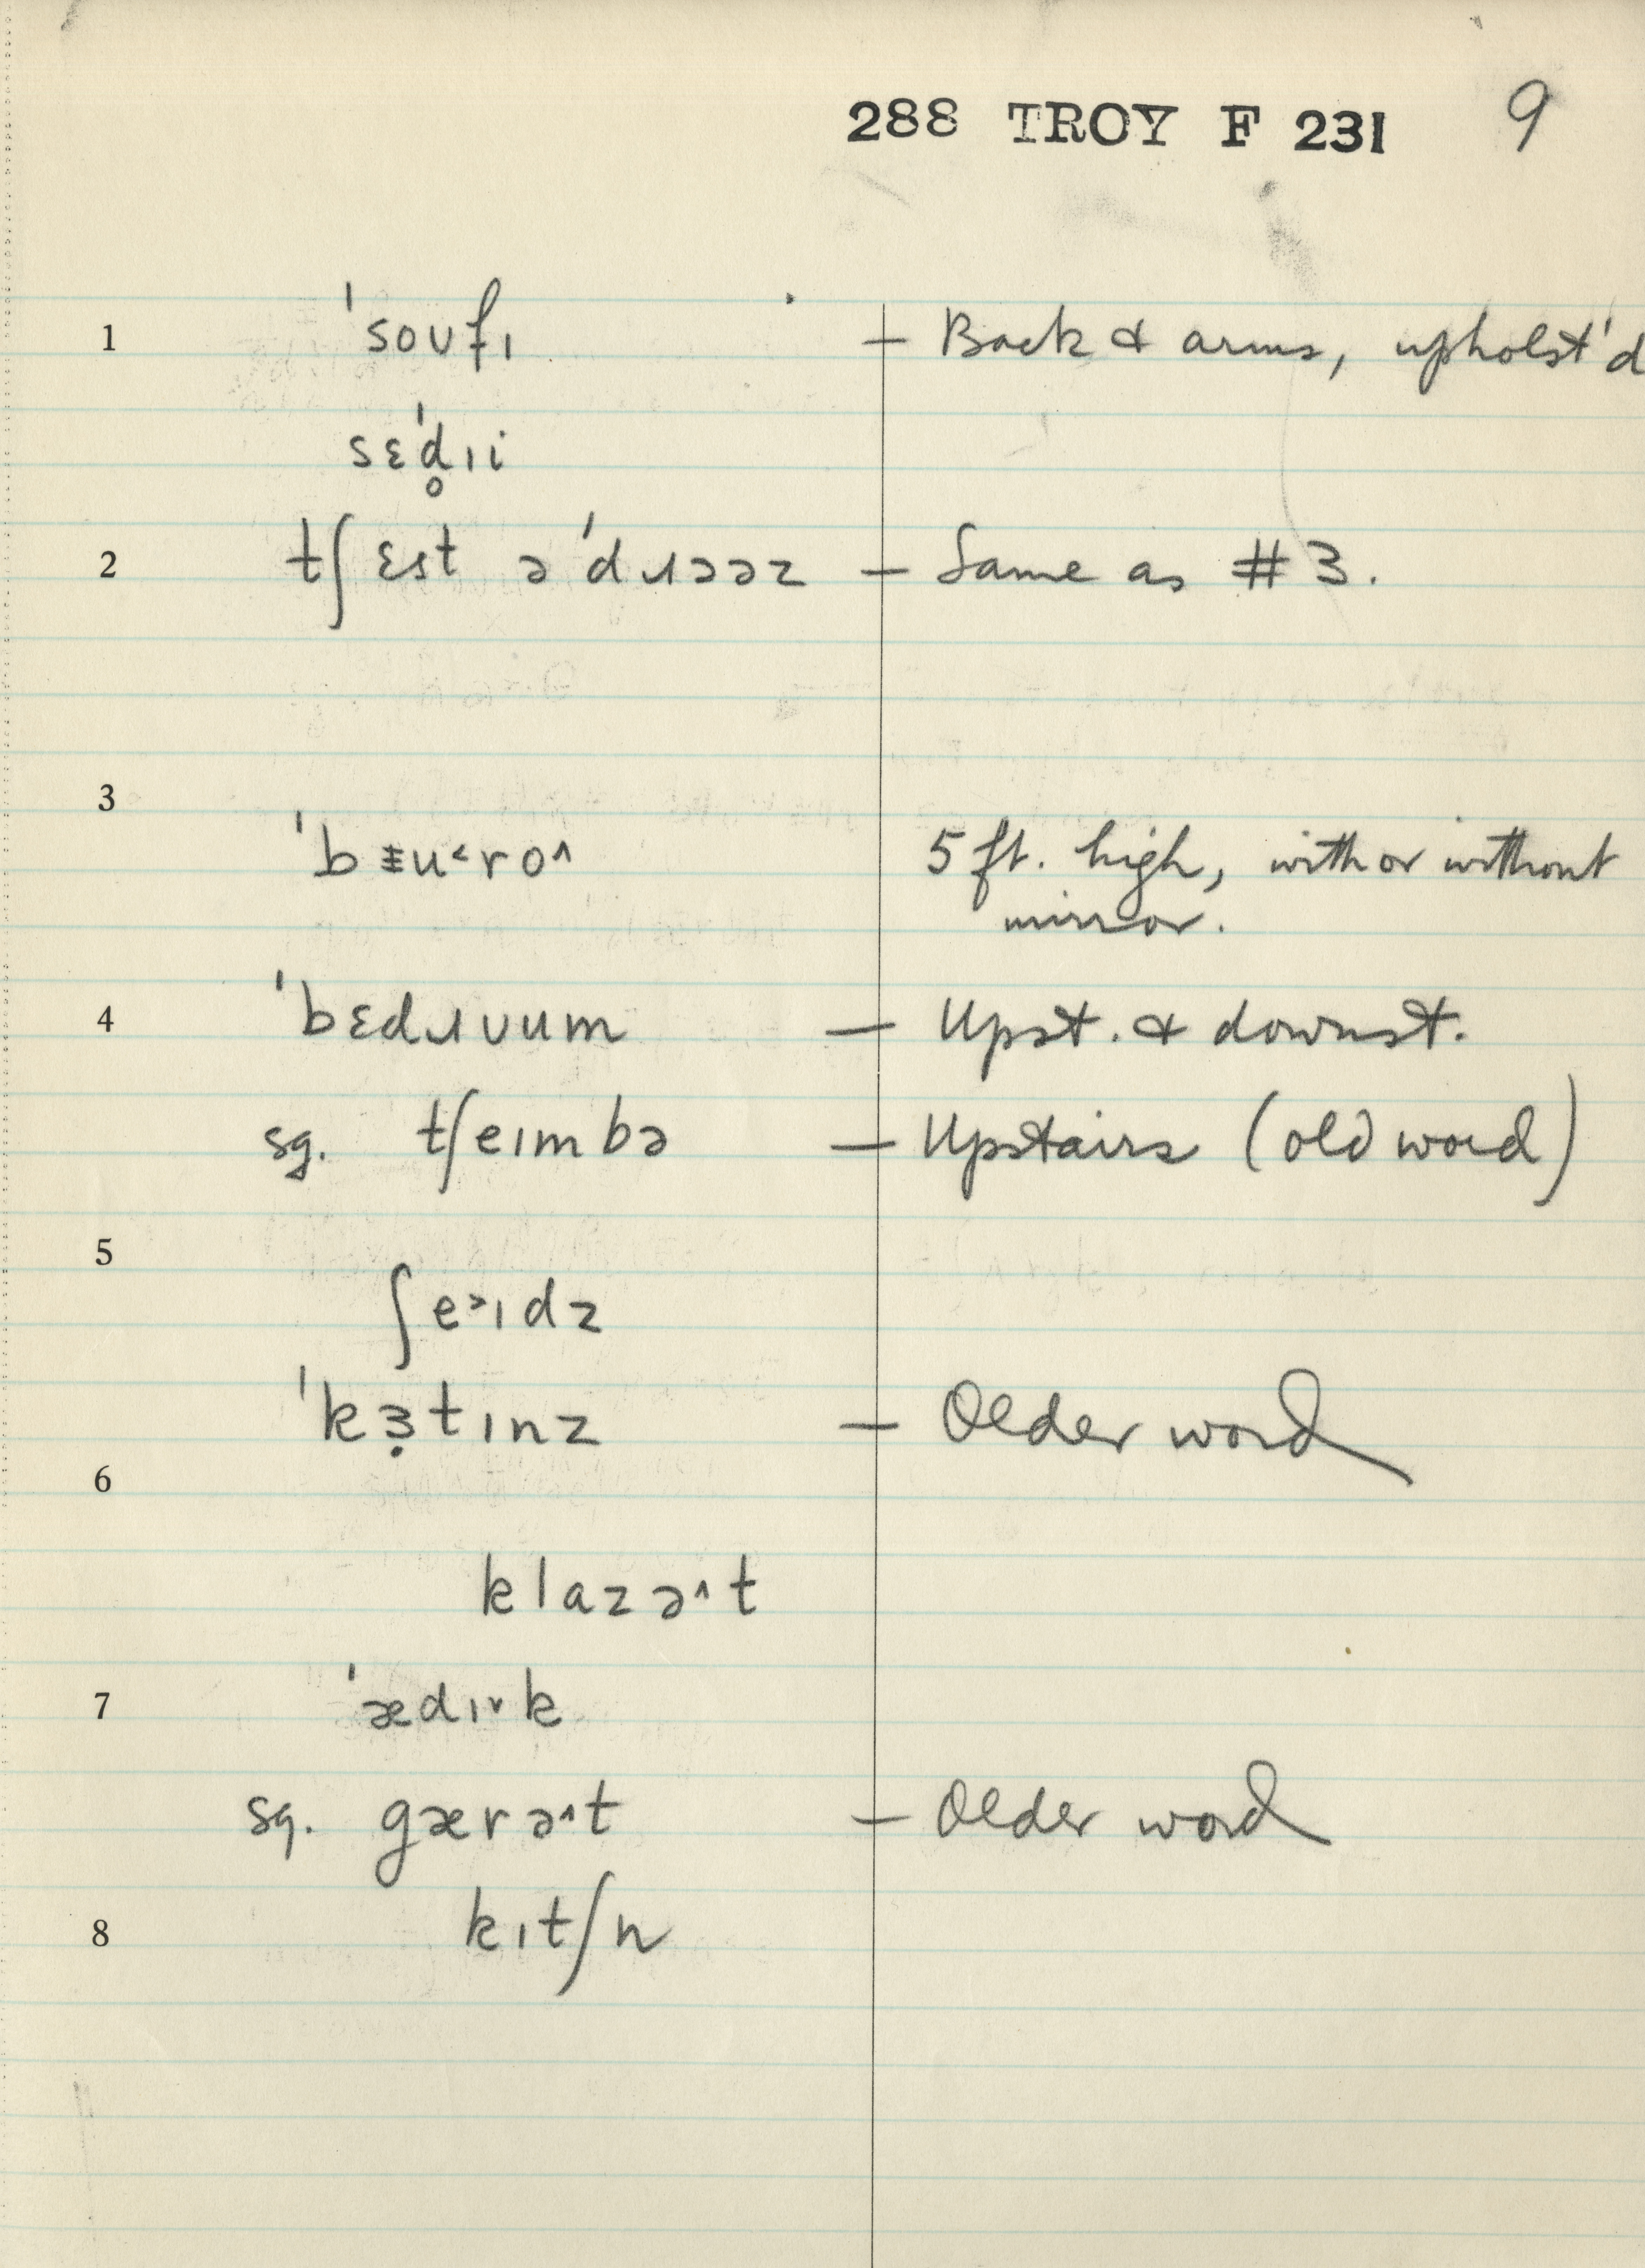 288 TROY F 231 9
1 ˈsoʊfɪ — Back & arms, upholst'd
sɛˈd̥ɪi
2 tʃɛst əˈdɹɔəz — Same as #3.
3
ˈbɪ̵u˂ro˄ 5 ft. high, with or without
mirror.
4 ˈbɛdɹʊum — Upst. & downst.
sg. tʃeɪmbə — Upstairs (old word)
5
ʃe˃ɪdz
ˈkɜ̣tɪnz — Older word
6
klazə˄t
7 ˈædɪ˅k
sg. gærə˄t — Older word
8 kɪtʃn